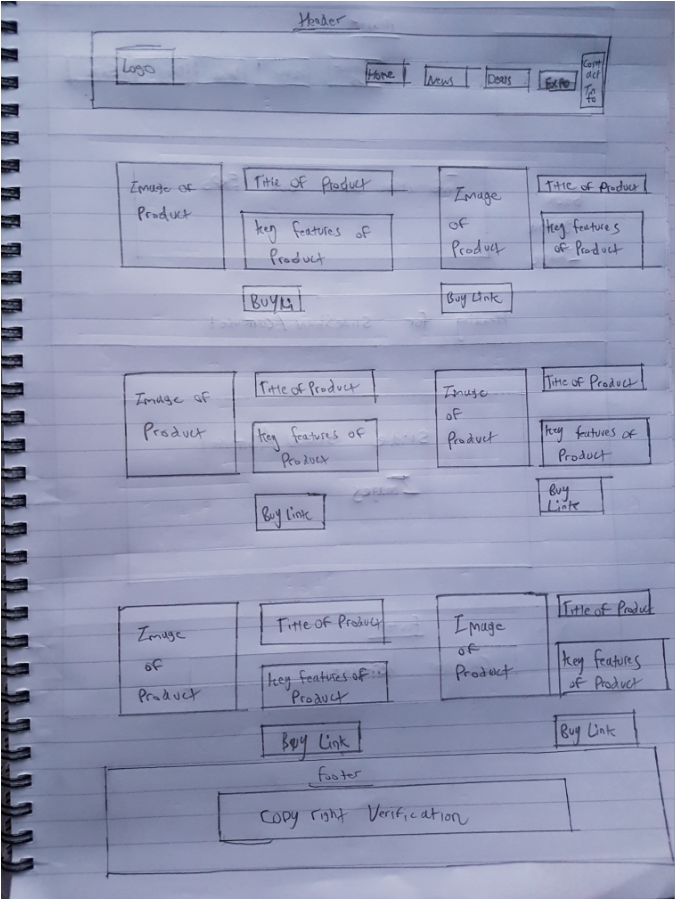 Header
Logo
Home
News
Deals
Expo
Cont
act
In
fo
Image of
Product
Title of Product
key features of
Product
Buy Li
Image
of
Product
Title of Product
key features
of Product
Buy Link
Image of
Product
Title of Product
key features of
Product
Buy Link
Image
of
Product
Title of Product
key features of
Product
Buy
Link
Image
of
Product
Title of Product
key features of
Product
Buy Link
Image
of
Product
Title of Product
key features
of Product
Buy Link
footer
Copy right Verification